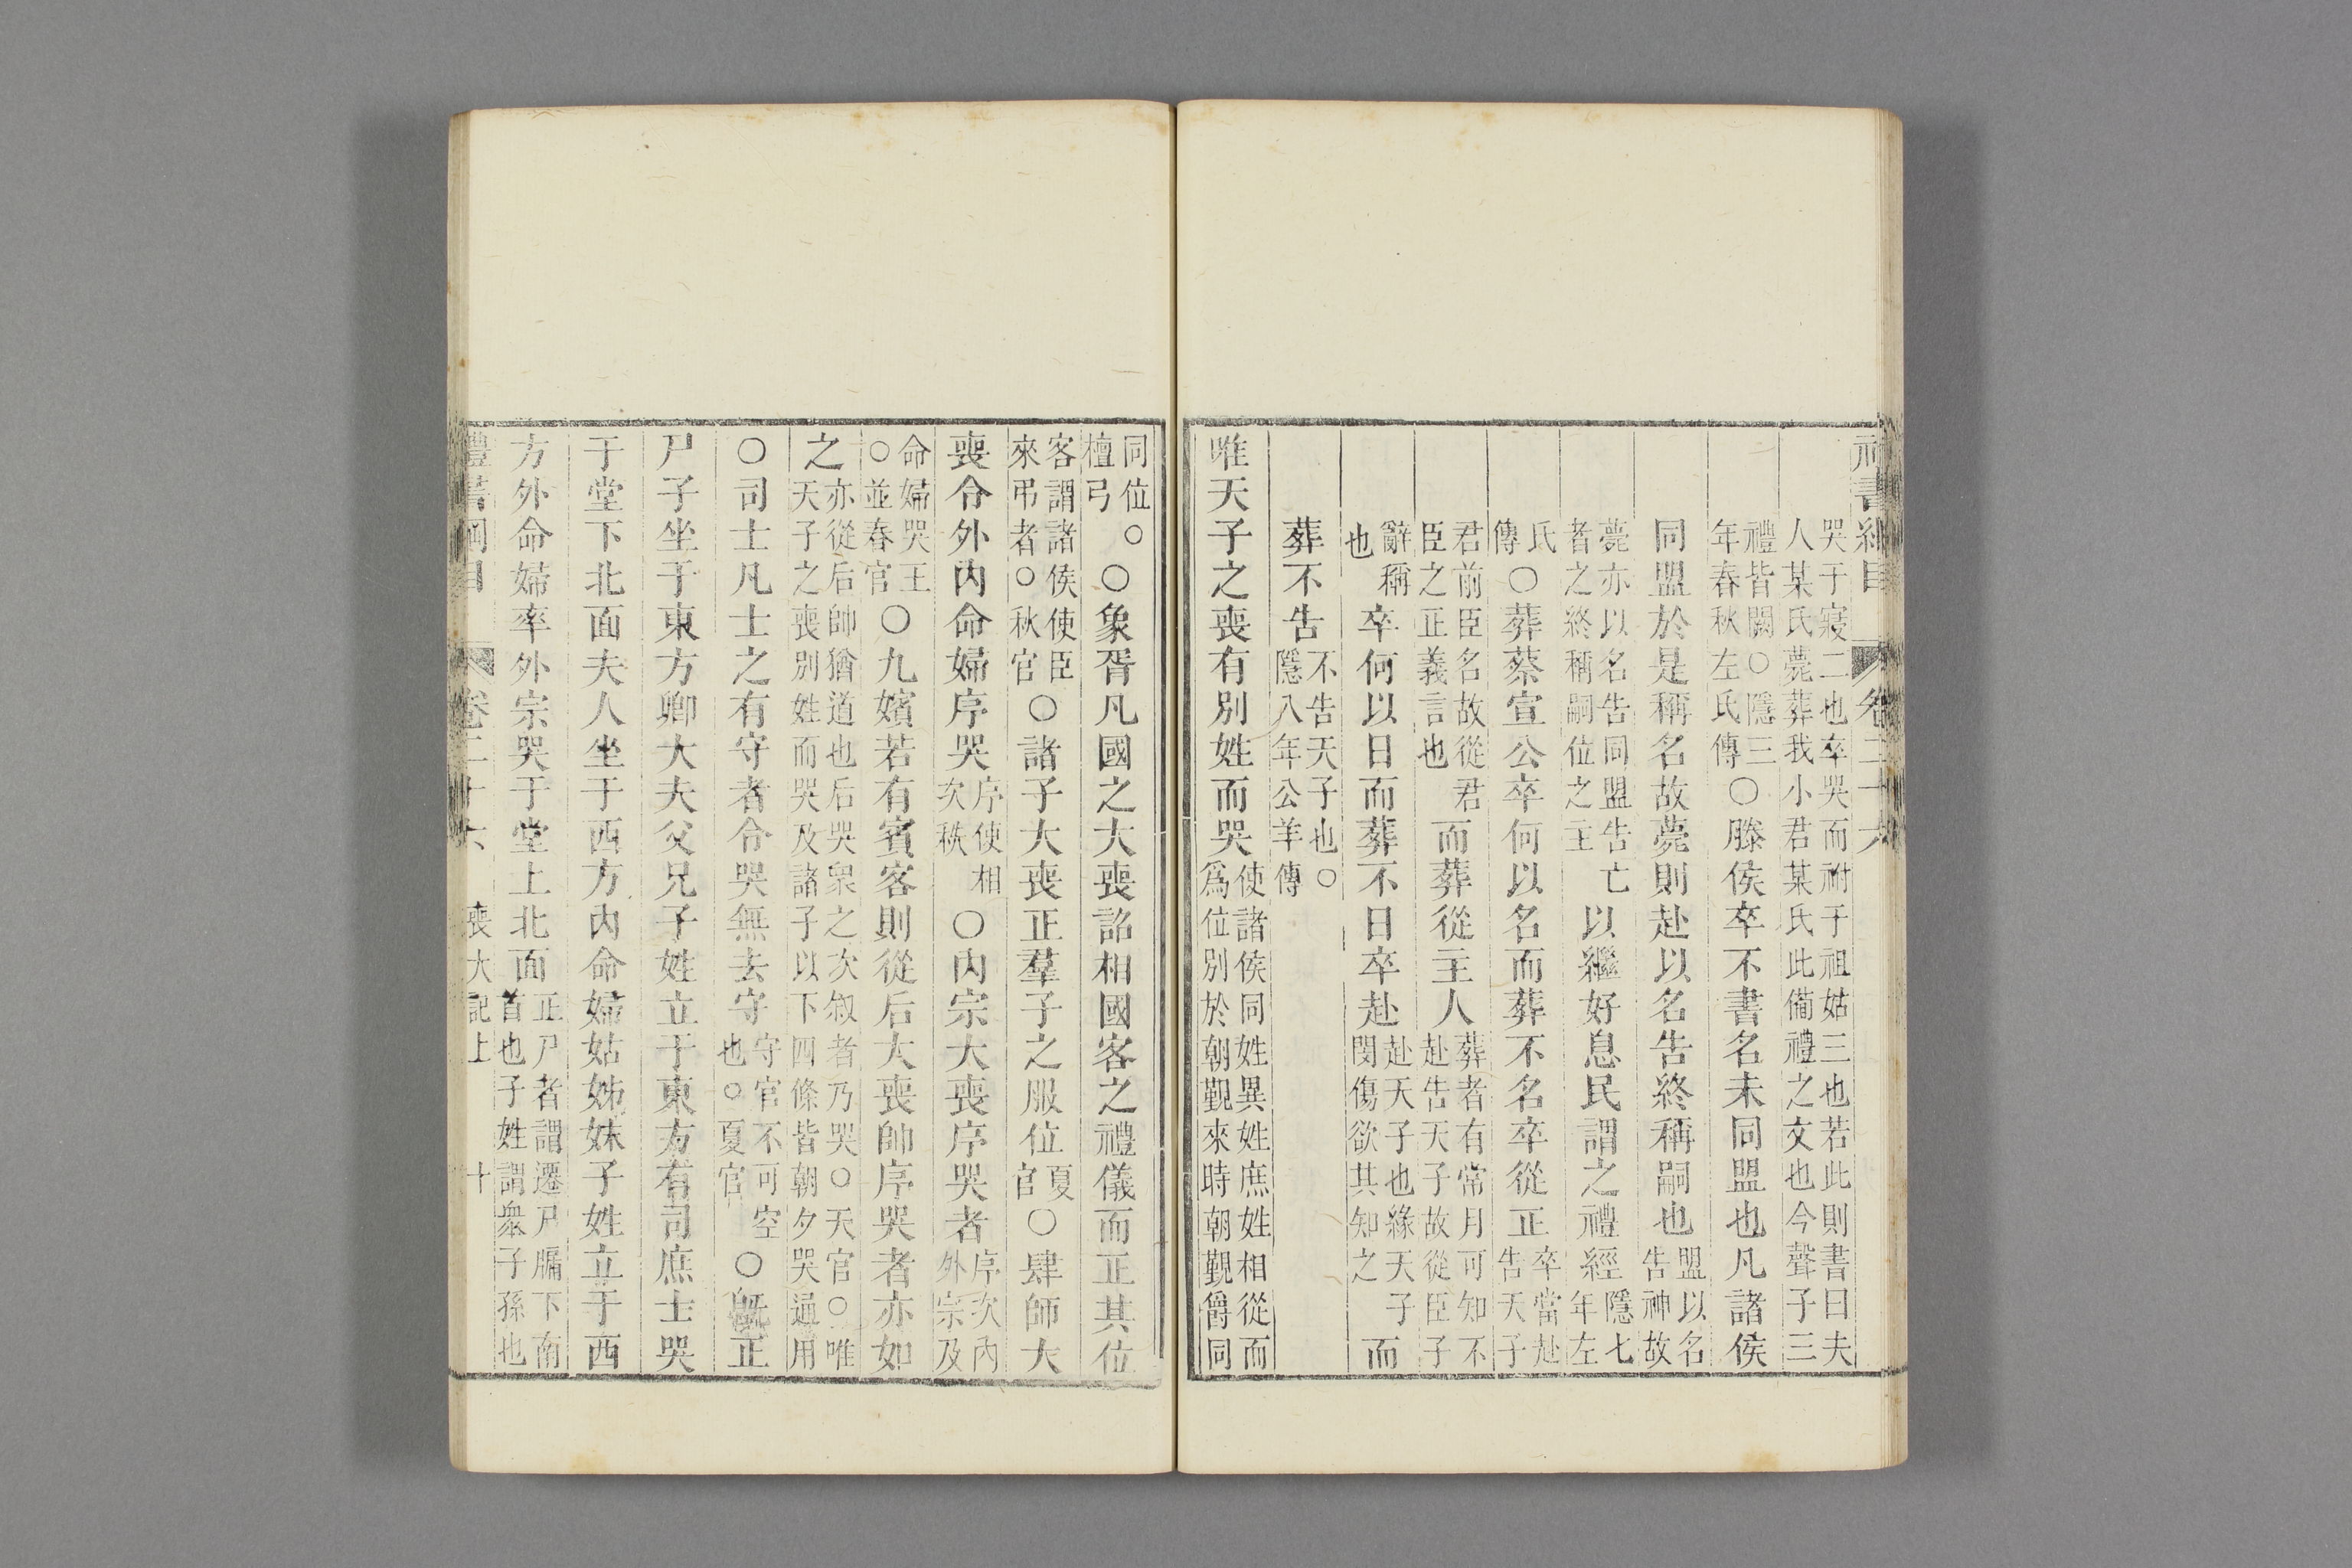 禮書綱目 卷二十六
哭于寢二也卒哭而祔于祖姑三也若此則書曰夫
人某氏薨葬我小君某氏此備禮之文也今聲子三
禮皆闕○隱三
年春秋左氏傳
○滕侯卒不書名未同盟也凡諸侯
同盟於是稱名故薨則赴以名告終稱嗣也
盟以名
告神故
薨亦以名告同盟告亡
者之終稱嗣位之主
以繼好息民謂之禮經
隱七
年左
氏
傳
○葬蔡宣公卒何以名而葬不名卒從正
卒當赴
告天子
君前臣名故從君
臣之正義言也
而葬從主人
葬者有常月可知不
赴告天子故從臣子
辭稱
也
卒何以日而葬不日卒赴
赴天子也緣天子
閔傷欲其知之
而
葬不告
不告天子也○
隱八年公羊傳
唯天子之喪有別姓而哭
使諸侯同姓異姓庶姓相從而
爲位別於朝覲來時朝覲爵同
同位○
檀弓
○象胥凡國之大喪詔相國客之禮儀而正其位
客謂諸侯使臣
來弔者○秋官
○諸子大喪正羣子之服位
夏
官
○肆師大
喪令外內命婦序哭
序使相
次秩
○內宗大喪序哭者
序次內
外宗及
命婦哭王
○並春官
○九嬪若有賓客則從后大喪帥序哭者亦如
之
亦從后帥猶道也后哭衆之次敘者乃哭○天官○唯
天子之喪別姓而哭及諸子以下四條皆朝夕哭通用
○司士凡士之有守者令哭無去守
守官不可空
也○夏官
○旣正
尸子坐于東方卿大夫父兄子姓立于東方有司庶士哭
于堂下北面夫人坐于西方內命婦姑姊妹子姓立于西
方外命婦率外宗哭于堂上北面
正尸者謂遷尸牖下南
首也子姓謂衆子孫也
禮書綱目 卷二十六 喪大記上 十